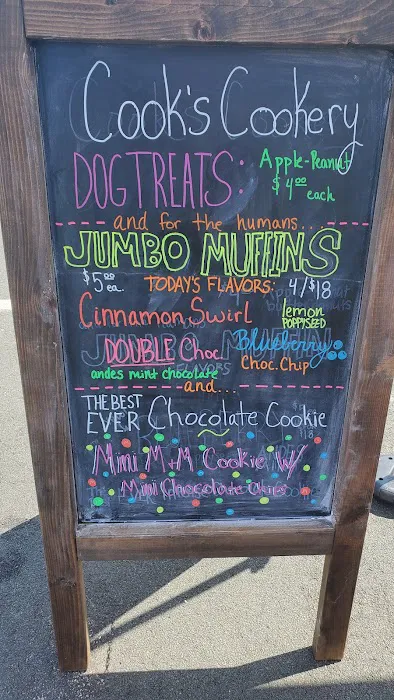 Cook's Cookery
DOG TREATS:
Apple-Peanut
$4.00 each
and for the humans...
JUMBO MUFFINS
$5.00 ea.
TODAY'S FLAVORS:
4/$18
Cinnamon Swirl
lemon
POPPYSEED
DOUBLE Choc.
Blueberry
andes mint chocolate
Choc. Chip
and...
THE BEST
EVER Chocolate Cookie
Mini M+M Cookie W/
Mini Chocolate Chips